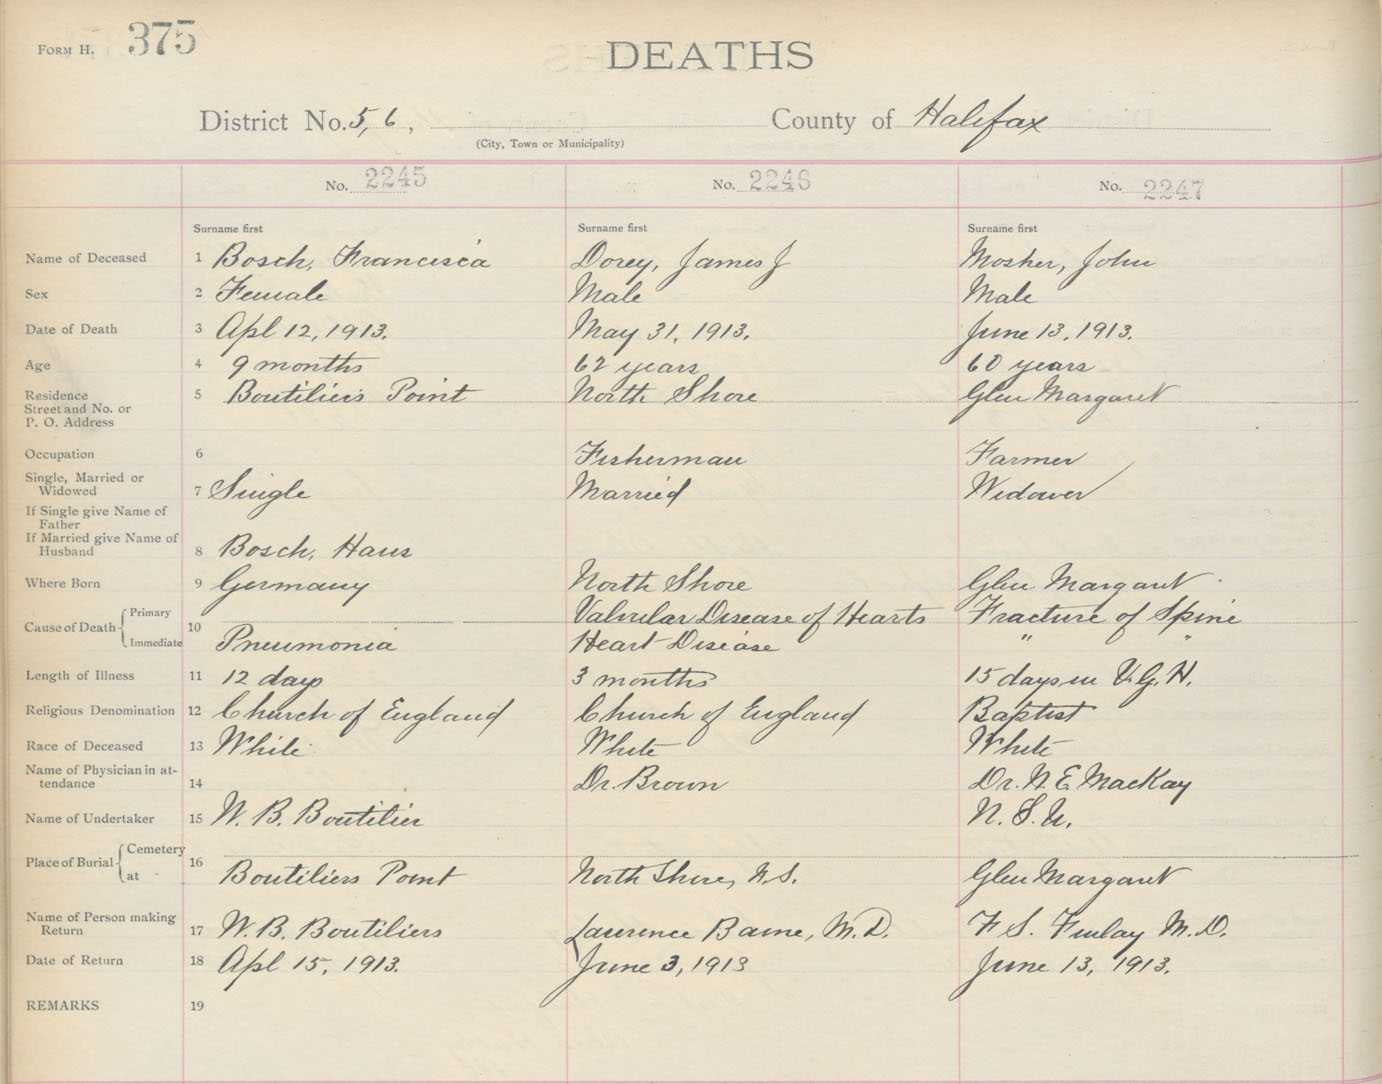 FORM H. 375
DEATHS
District No. 5, 6, County of Halifax
(City, Town or Municipality)
No. 2245 No. 2246 No. 2247
Surname first Surname first Surname first
Name of Deceased 1 Bosch, Francisca Dorey, James J Mosher, John
Sex 2 Female Male Male
Date of Death 3 Apl 12, 1913. May 31, 1913. June 13, 1913.
Age 4 9 months 62 years 60 years
Residence 5 Boutiliers Point North Shore Glen Margaret
Street and No. or
P. O. Address
Occupation 6 Fisherman Farmer
Single, Married or
Widowed 7 Single Married Widower
If Single give Name of
Father
If Married give Name of
Husband 8 Bosch, Hans
Where Born 9 Germany North Shore Glen Margaret
Primary Valvular Disease of Hearts Fracture of Spine
Cause of Death 10
Immediate Pneumonia Heart Disease " "
Length of Illness 11 12 days 3 months 15 days in V.G.H.
Religious Denomination 12 Church of England Church of England Baptist
Race of Deceased 13 White White White
Name of Physician in at-
tendance 14 Dr. Brown Dr. N. E MacKay
Name of Undertaker 15 W. B. Boutilier N. S. U.
Cemetery
Place of Burial 16
at Boutiliers Point North Shore, N.S. Glen Margaret
Name of Person making
Return 17 W. B. Boutiliers Lawrence M.D. F S. Finlay M.D.
Date of Return 18 Apl 15, 1913. June 3, 1913 June 13, 1913.
REMARKS 19